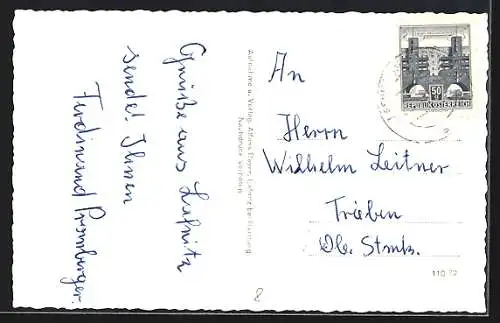 Grüße aus Lafnitz
sendet Ihnen
Ferdinand Prombergger.
Aufnahme u. Verlag:
Nachdruck verboten
An
Herrn
Wilhelm Leitner
Trieben
Ob. Stmk.
50
REPUBLIK ÖSTERREICH
110 72
8